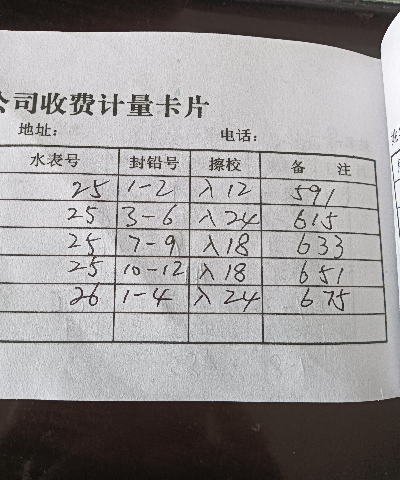 公司收费计量卡片
地址: 电话:
水表号 封铅号 擦校 备 注
25 1-2 入12 591
25 3-6 入24 615
25 7-9 入18 633
25 10-12 入18 651
26 1-4 入24 675